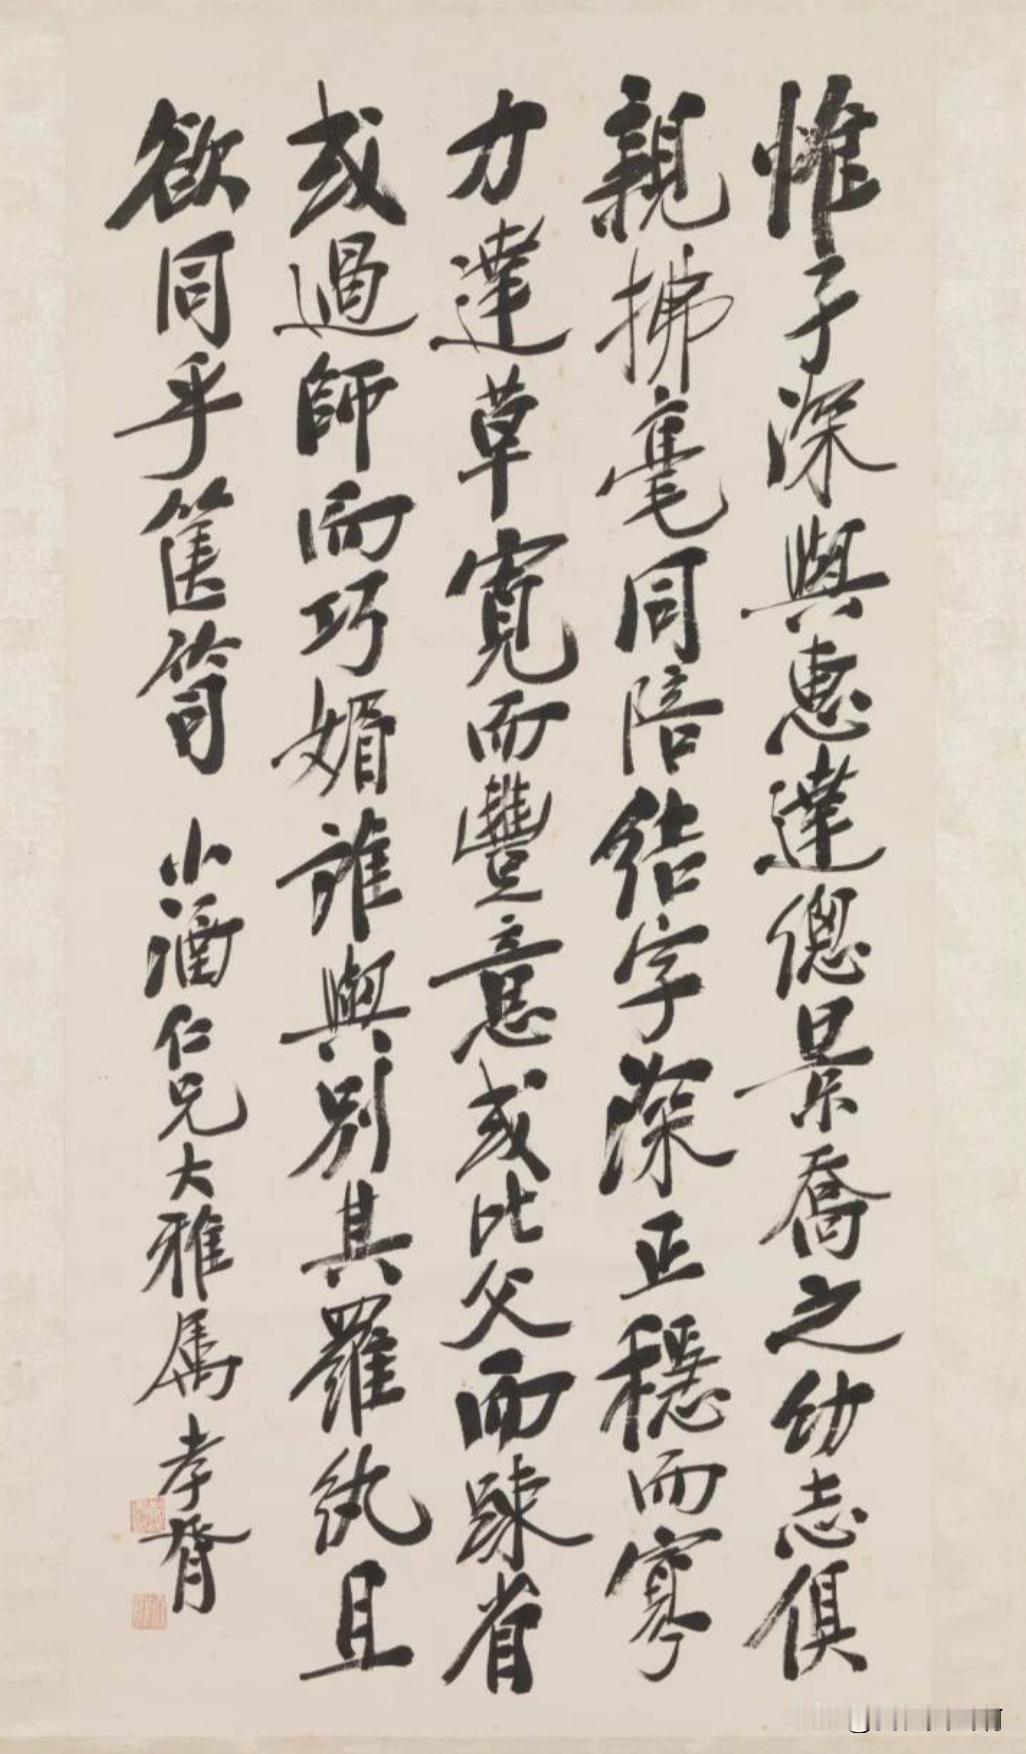 惟子深與惠達偬景喬之幼志俱
親拂毫同陪結字深正穩而寡
力達草寬而豐意或比父而疎省
或過師而巧媚誰與別其羅紈且
欲同乎篋笥 小酒仁兄大雅属 孝胥